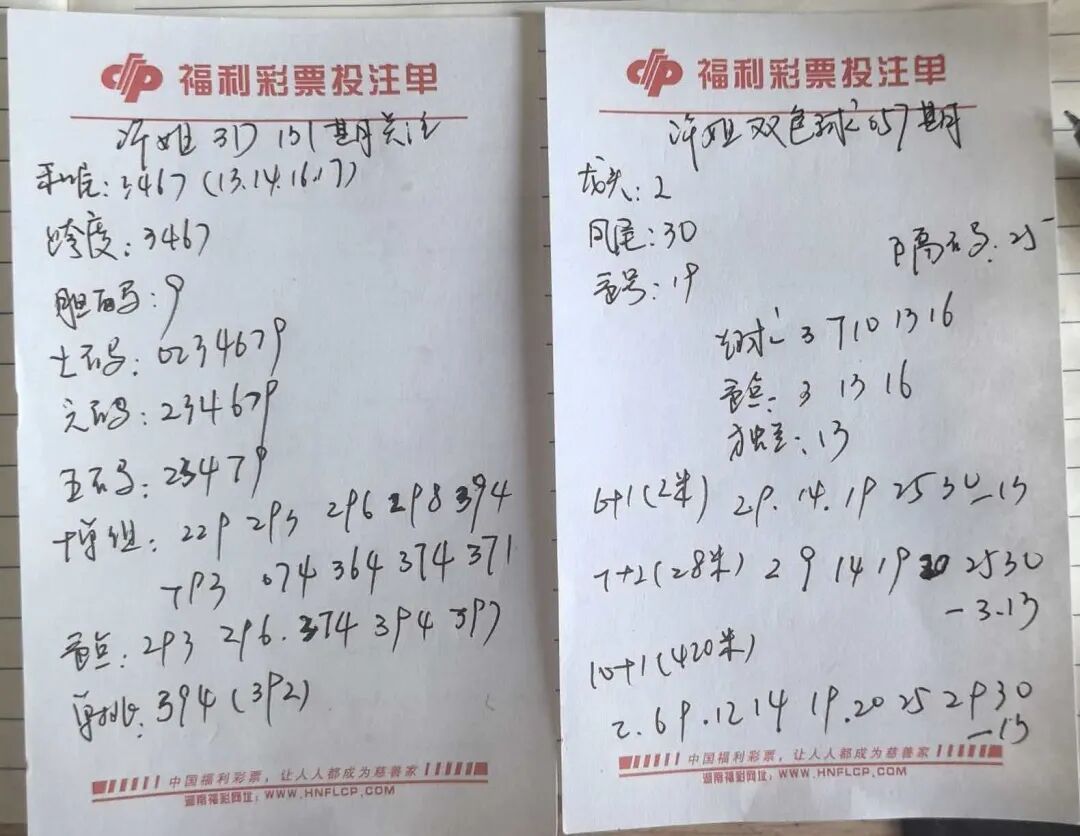 福利彩票投注单
许姐 3D 151期关注
和值:3467(13.14.16.17)
跨度:3467
胆码:9
七码:0234679
六码:234679
五码:23479
十单组:229 293 296 298 394
793 074 364 374 371
重点:293 296.374 394 397
单挑:394(392)
中国福利彩票,让人人都成为慈善家
湖南福彩网址:WWW.HNFLCP.COM
福利彩票投注单
许姐双色球057期
龙头:2
凤尾:30
隔码.25
重号:19
蓝球 3 7 10 13 16
重点:3 13 16
独蓝:13
6+1(2米) 2 9.14.19 25 30—13
7+2(28米) 2 9 14 19 20 25 30
—3.13
10+1(420米)
2.6 9.12 14 19.20 25 29 30
—13
中国福利彩票,让人人都成为慈善家
湖南福彩网址:WWW.HNFLCP.COM